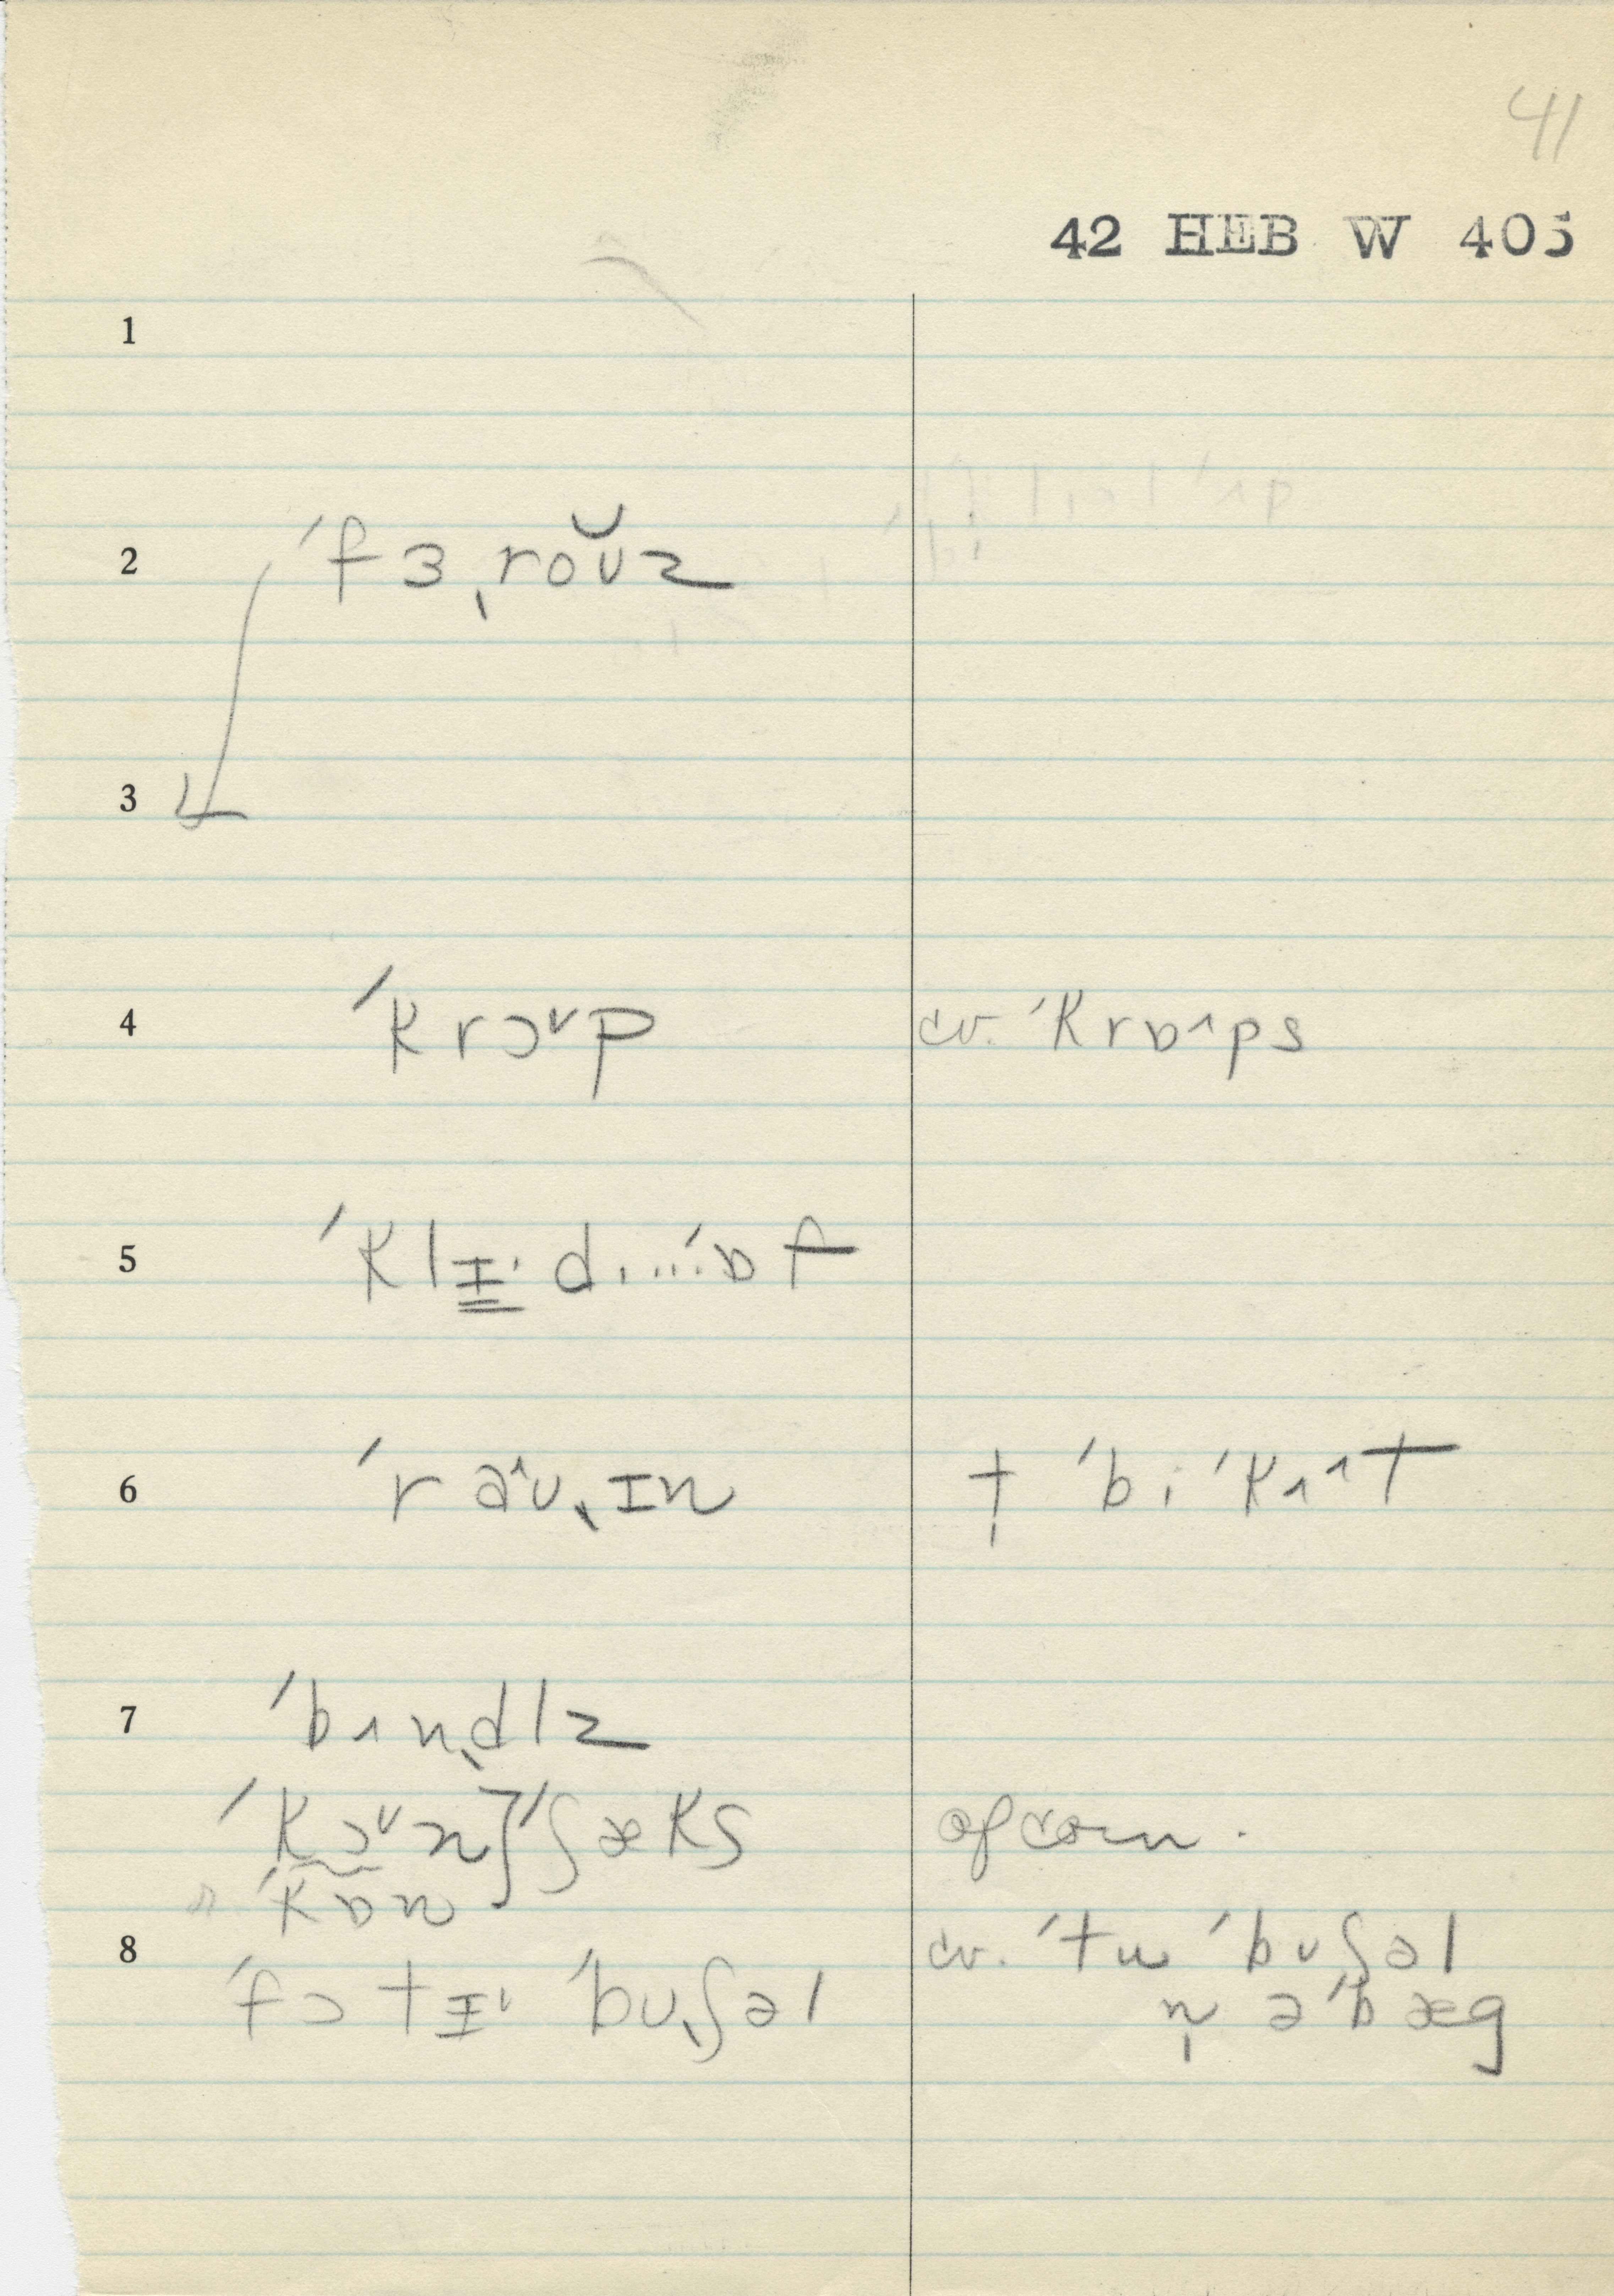 41
42 HEB W 405
1
2 ˈfɜˌroʊ̆z
3
4 ˈkrɔ˅p cv. ˈkrɒ˄ps
5 ˈklɪ̳ˈd....ˈɒf
6 ˈraʊ˄ˌɪn † ˈbiˈkʌ˄t
7 ˈbʌnˌdlz
ˈkɔ˅n] ˈʃæks of corn.
ˈkɒn
8 ˈfɔtɪˈ ˈbʊˌʃəl cv. ˈtu ˈbʊʃəl
n̩ əˈbæg